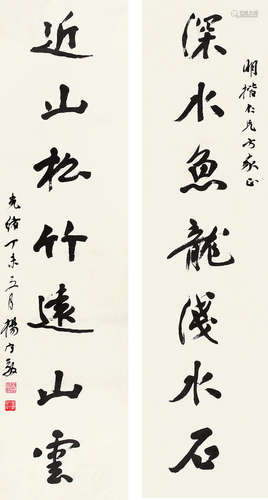 明楷仁兄方家正
深水魚龍淺水石
近山松竹遠山雲
光緒丁未三月楊守敬